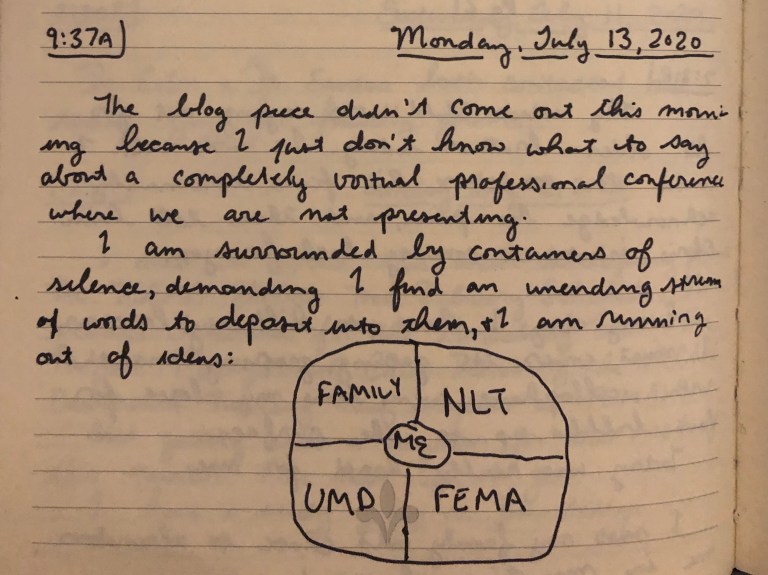 9:37A
Monday, July 13, 2020
The blog piece didn't come out this morni-
ng because I just don't know what to say
about a completely virtual professional conference
where we are not presenting.
I am surrounded by containers of
silence, demanding I find an unending stream
of words to deposit into them, & I am running
out of ideas:
FAMILY
NLT
ME
UMD
FEMA